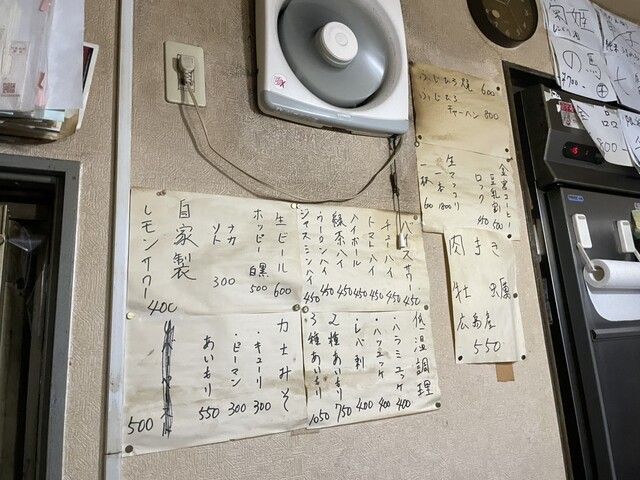 ふじむら焼 600
ふじむら
チャーハン 800
金黒コーヒー
豆乳割 500
ロック 450
生マッコリ
一合 800
一杯 60
肉まき
牡蠣
広島産
550
バイスサワー 450
チューハイ 450
トマトハイ 450
ハイボール 450
緑茶ハイ 450
ウーロンハイ 450
ジャスミンハイ 450
生ビール 600
ホッピー 白黒 500
ナカ 300
ソト
自家製
レモンサワー 400
低温調理
・ハラミユッケ 400
・ハツユッケ 400
・レバ刺 400
2種あいもり 750
3種あいもり 1050
力士みそ
・キューリ 300
・ピーマン 300
・あいもり 550
500
の馬
700-